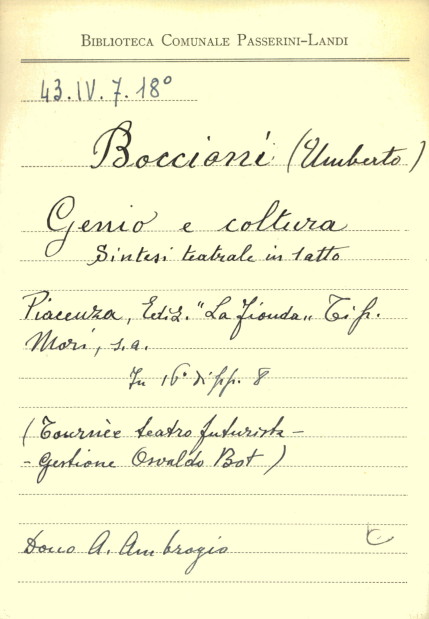 BIBLIOTECA COMUNALE PASSERINI-LANDI
43.IV.7.18°
Boccioni (Umberto)
Genio e coltura
Sintesi teatrale in 1 atto
Piacenza, Ediz. "La fionda" Tip.
Mori, s.a.
In 16° di pp. 8
(Tournèe teatro futurista -
- gestione Osvaldo Bot)
Dono A. Ambrogio